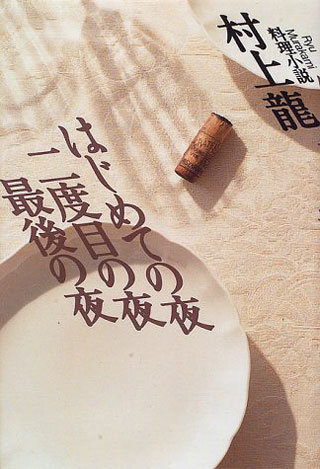 村上龍
料理小説
Ryu Murakami
はじめての夜
二度目の夜
最後の夜